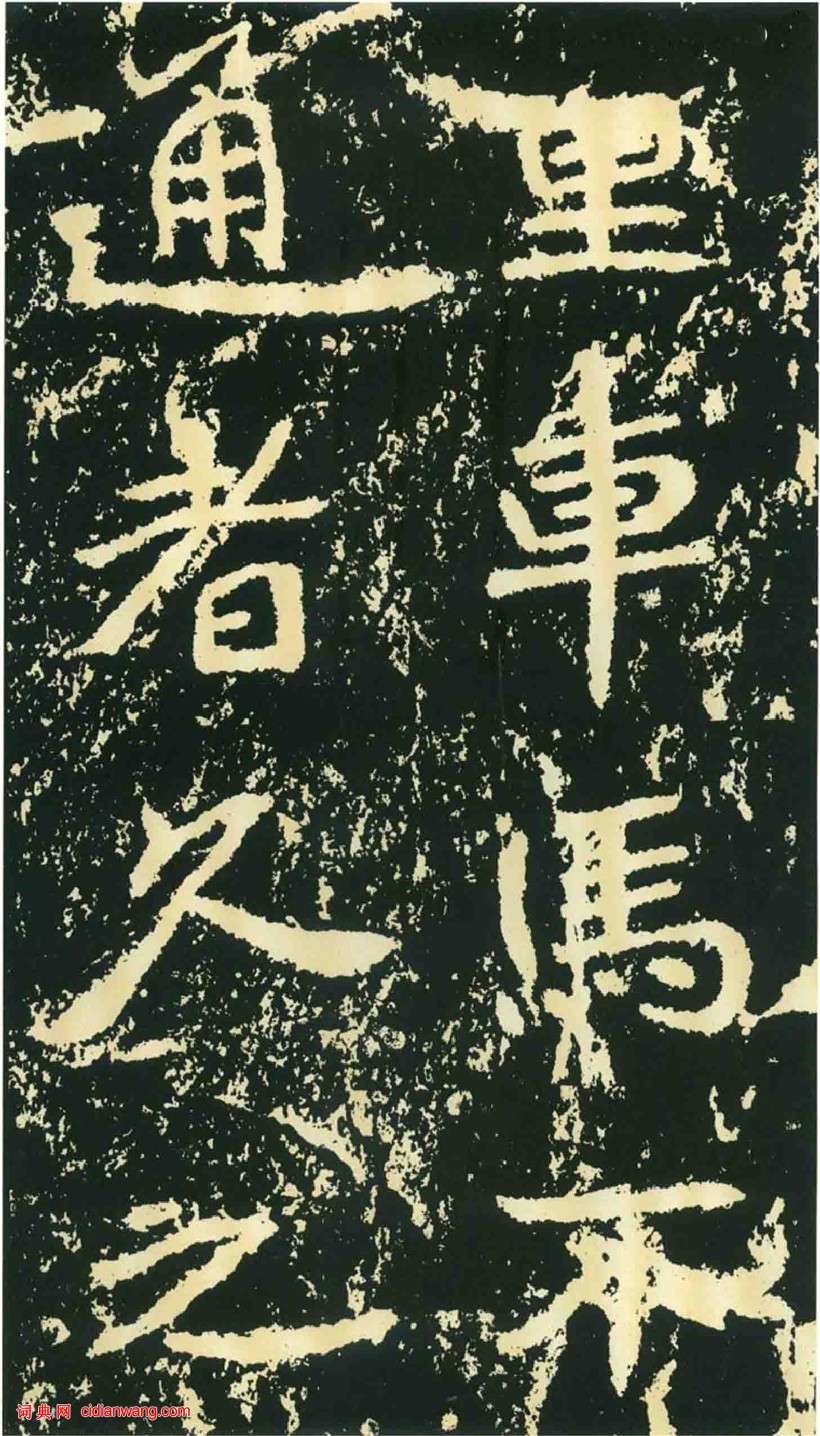 里車馬不
通者久之
词典网 cidianwang.com